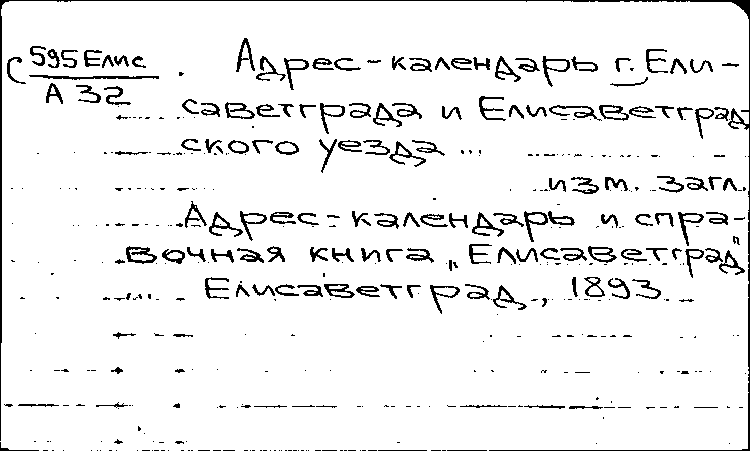 С 595 Елис
А 32
Адрес-календарь г. Ели-
саветграда и Елисаветград
ского уезда ...
изм. загл.
Адрес-календарь и спра-
вочная книга „Елисаветград"
... Елисаветград, 1893